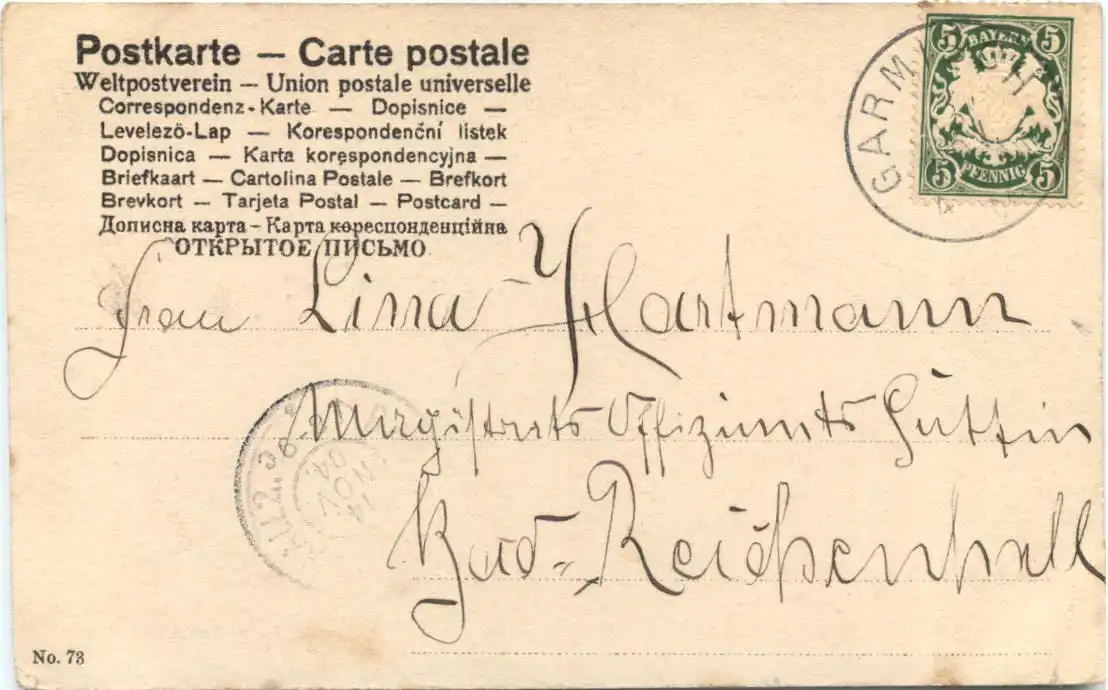 Postkarte — Carte postale
Weltpostverein — Union postale universelle
Correspondenz-Karte — Dopisnice —
Levelezö-Lap — Korespondenční listek
Dopisnica — Karta korespondencyjna —
Briefkaart — Cartolina Postale — Brefkort
Brevkort — Tarjeta Postal — Postcard —
Дописна карта – Карта кореспонденційна
ОТКРЫТОЕ ПИСЬМО
5 BAYERN 5
5 PFENNIG 5
GARM
Frau Lina Hartmann
Magistrats Offiziants Gattin
Bad-Reichenhall
14 NOV 04
No. 73